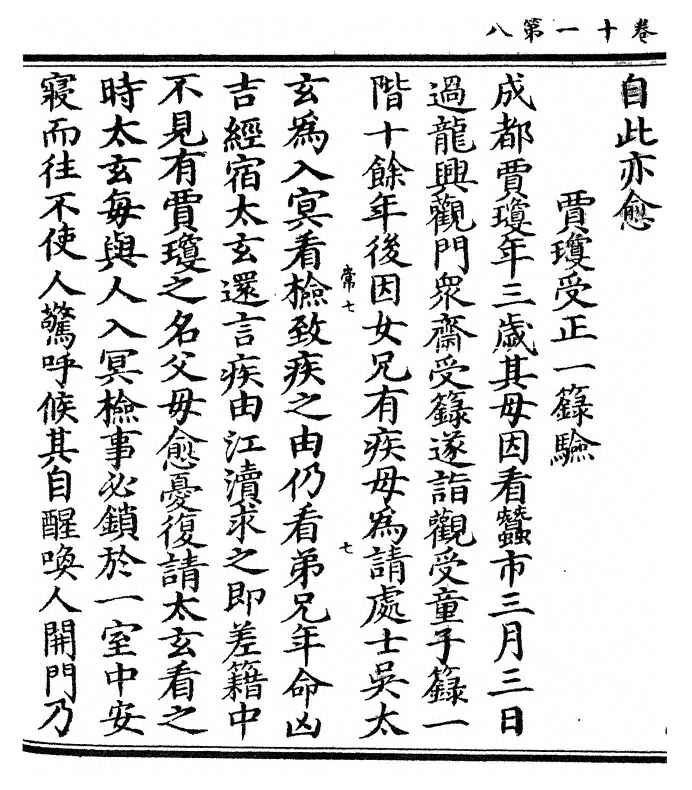 卷十一第八
自此亦愈
賈瓊受正一籙驗
成都賈瓊年三歲其母因看蠶市三月三日
過龍興觀門衆齋受籙遂詣觀受童子籙一
階十餘年後因女兄有疾母爲請處士吳太
常七
七
玄爲入冥看檢致疾之由仍看弟兄年命凶
吉經宿太玄還言疾由江瀆求之即差籍中
不見有賈瓊之名父母愈憂復請太玄看之
時太玄每與人入冥檢事必鎖於一室中安
寢而往不使人驚呼候其自醒喚人開門乃